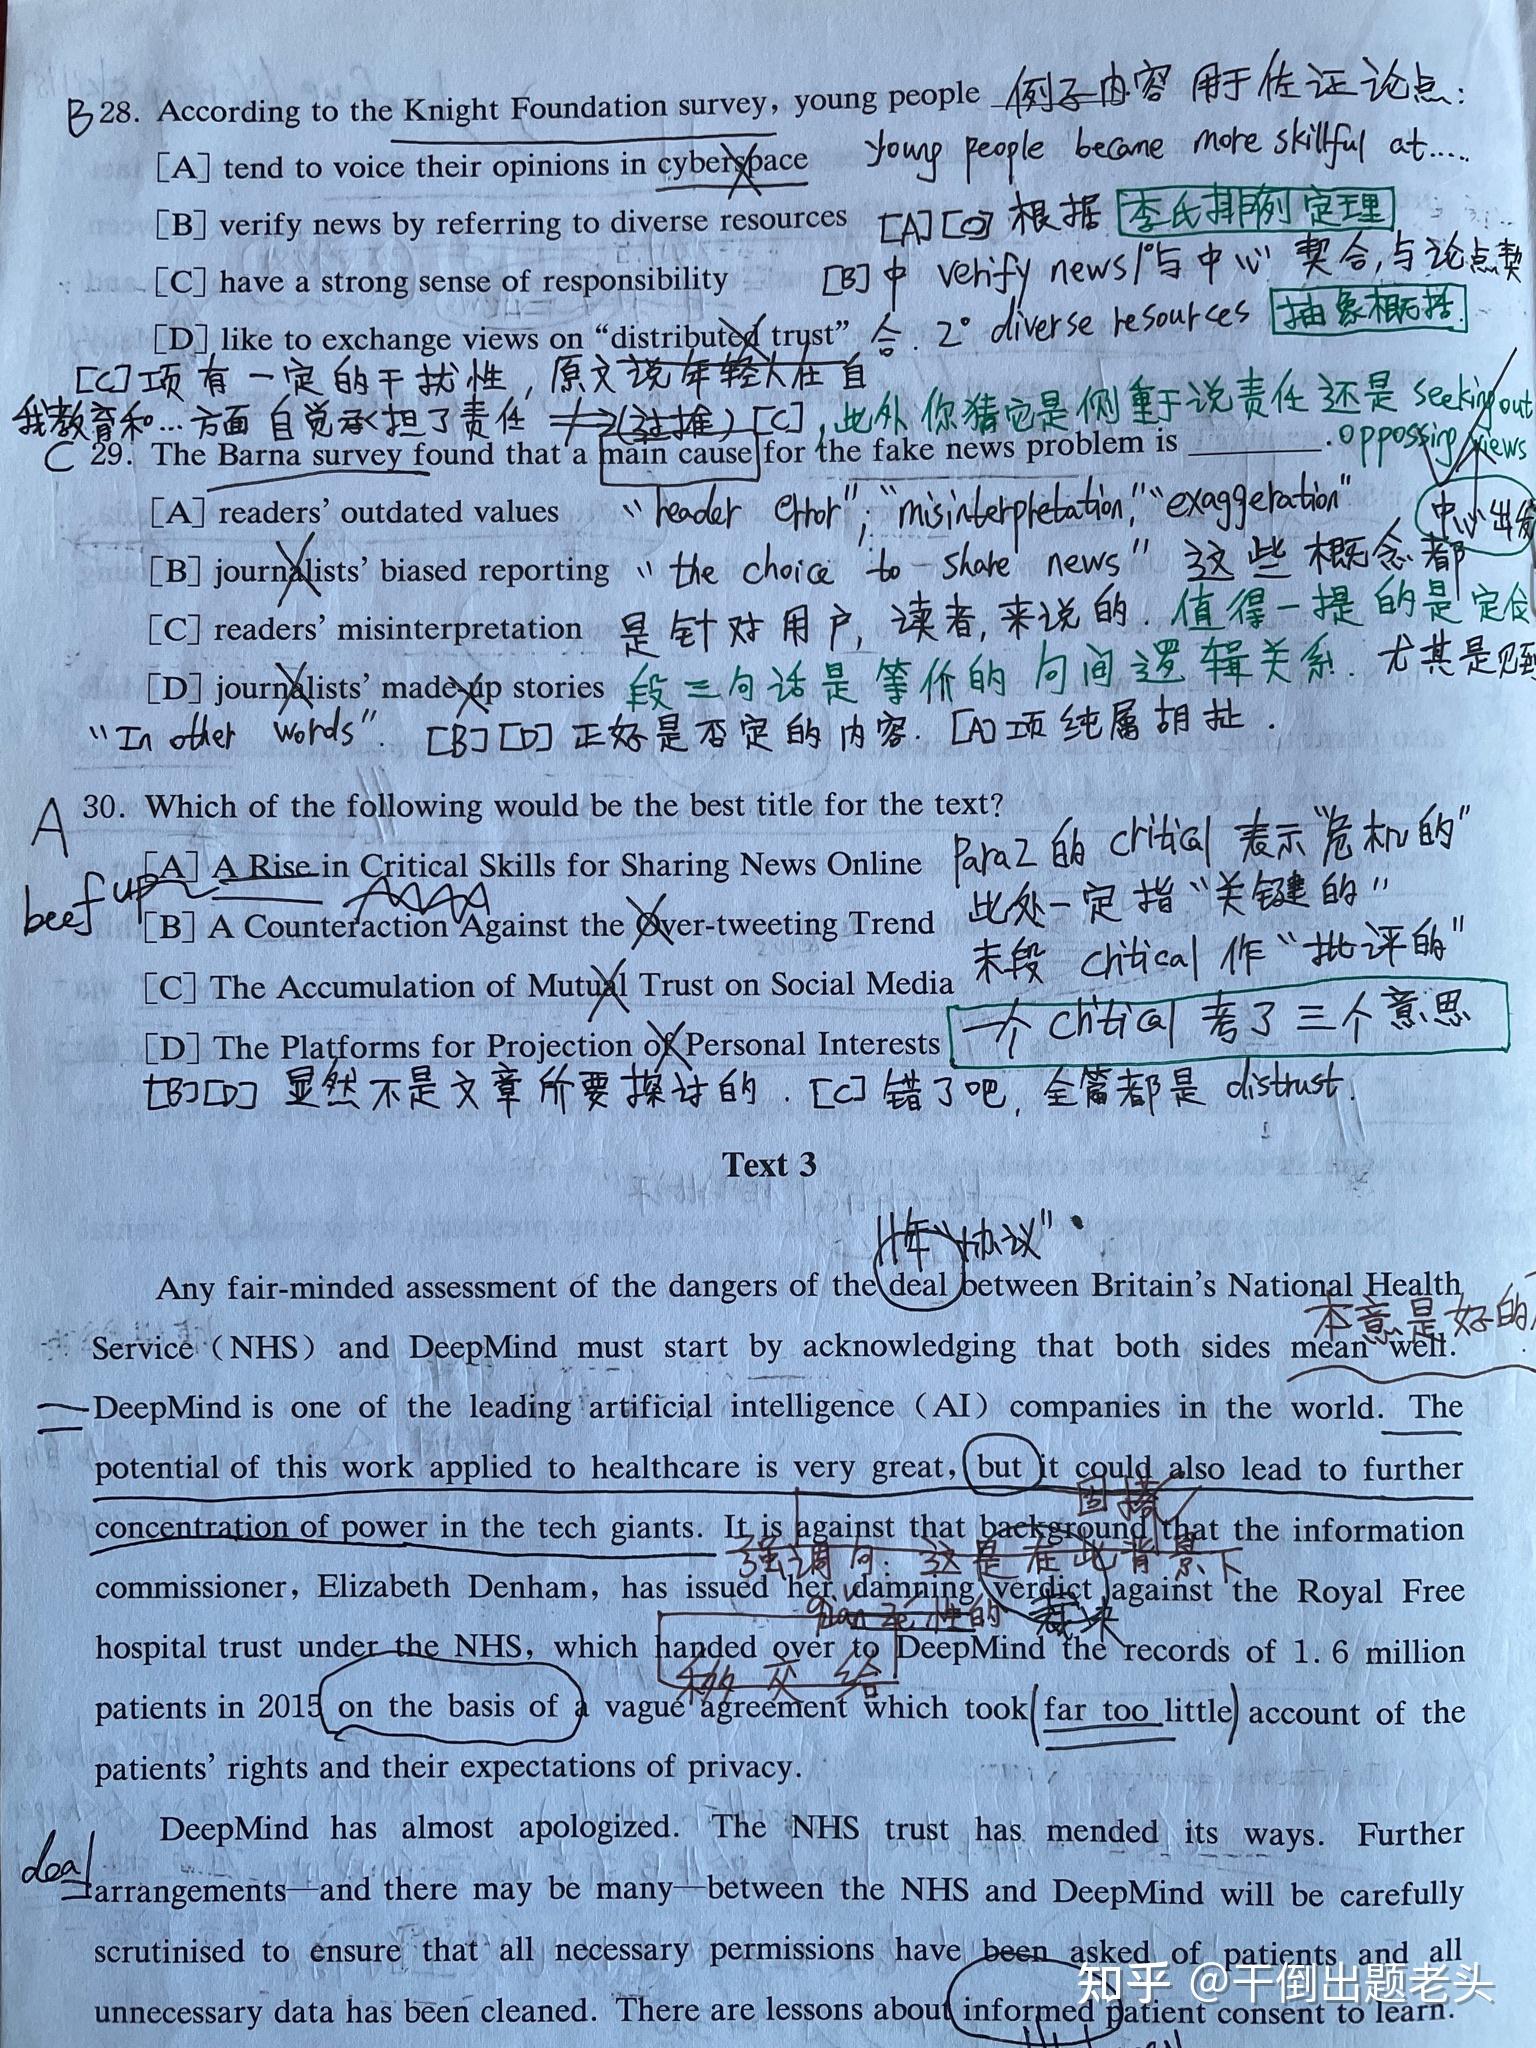 B 28. According to the Knight Foundation survey, young people 例子内容 用于佐证论点:
[A] tend to voice their opinions in cyberspace
young people became more skillful at.....
[B] verify news by referring to diverse resources
[A][D] 根据 李氏排例定理
[C] have a strong sense of responsibility
[B]中 verify news 1°与"中心"契合,与论点契
[D] like to exchange views on “distributed trust”
合. 2° diverse resources 抽象概括.
[C]项有一定的干扰性, 原文说年轻人在自
我教育和...方面自觉承担了责任 (过推) [C], 此外你猜它是侧重于说责任还是 seeking out
oppossing views
C 29. The Barna survey found that a main cause for the fake news problem is ________.
中心出发
[A] readers’ outdated values
"header error"; "misinterpretation", "exaggeration"
[B] journalists’ biased reporting
"the choice to share news" 这些概念都
[C] readers’ misinterpretation
是针对用户, 读者, 来说的. 值得一提的是定位
[D] journalists’ made-up stories
段三句话是等价的句间逻辑关系. 尤其是见到
"In other words". [B][D] 正好是否定的内容. [A]项纯属胡扯.
A 30. Which of the following would be the best title for the text?
[A] A Rise in Critical Skills for Sharing News Online
Para2 的 critical 表示"危机的"
beef up
此处一定指"关键的"
[B] A Counteraction Against the Over-tweeting Trend
末段 critical 作"批评的"
[C] The Accumulation of Mutual Trust on Social Media
一个 critical 考了三个意思
[D] The Platforms for Projection of Personal Interests
[B][D] 显然不是文章所要探讨的. [C] 错了吧, 全篇都是 distrust.
Text 3
11年"协议"
Any fair-minded assessment of the dangers of the deal between Britain’s National Health
本意是好的
Service (NHS) and DeepMind must start by acknowledging that both sides mean well.
DeepMind is one of the leading artificial intelligence (AI) companies in the world. The
potential of this work applied to healthcare is very great, but it could also lead to further
concentration of power in the tech giants. It is against that background that the information
强调句: 这是在此背景下
commissioner, Elizabeth Denham, has issued her damning verdict against the Royal Free
裁决
hospital trust under the NHS, which handed over to DeepMind the records of 1. 6 million
移交给
patients in 2015 on the basis of a vague agreement which took far too little account of the
patients’ rights and their expectations of privacy.
DeepMind has almost apologized. The NHS trust has mended its ways. Further
deal
arrangements—and there may be many—between the NHS and DeepMind will be carefully
scrutinised to ensure that all necessary permissions have been asked of patients and all
unnecessary data has been cleaned. There are lessons about informed patient consent to learn.
知乎 @干倒出题老头